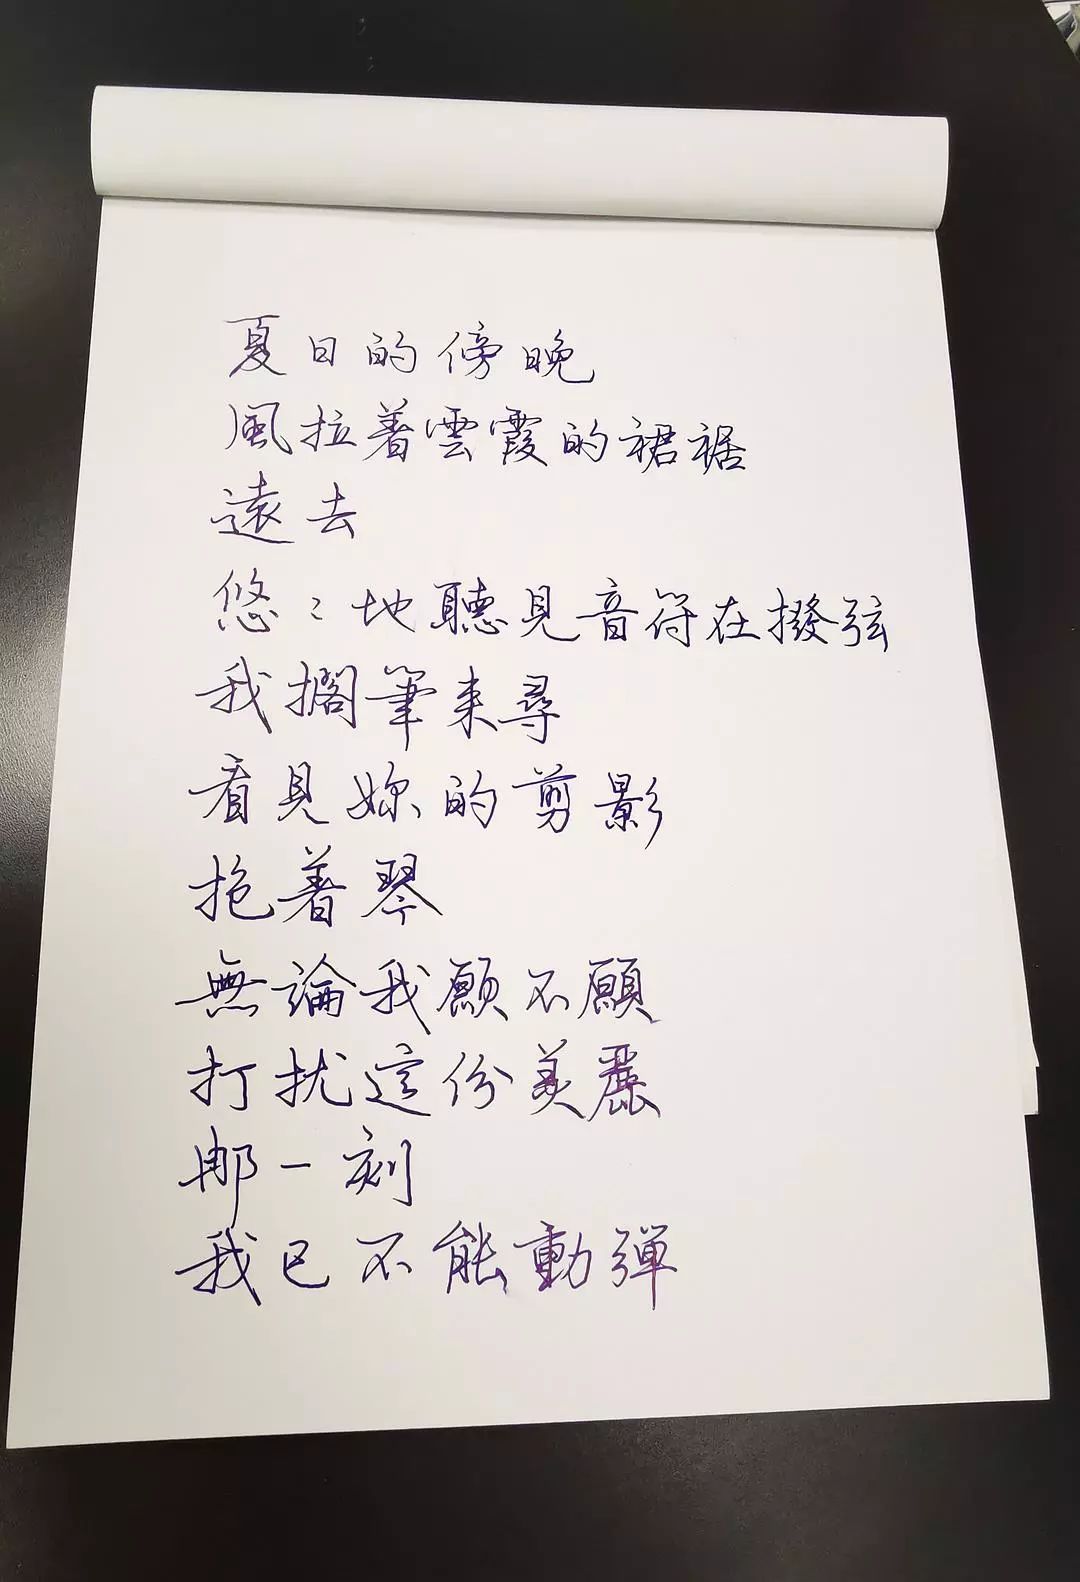 夏日的傍晚
風拉着雲霞的裙裾
遠去
悠〻地聽見音符在撥弦
我擱筆來尋
看見妳的剪影
抱着琴
無論我願不願
打扰這份美麗
那一刻
我已不能動彈